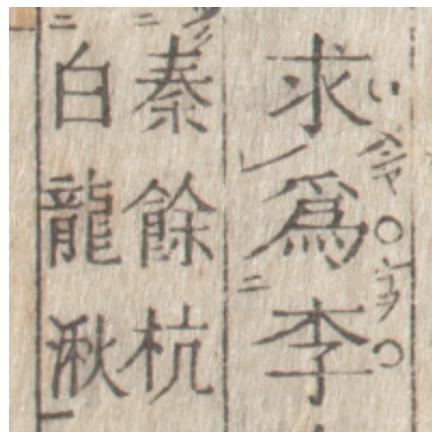 求爲李
秦餘杭
白龍湫